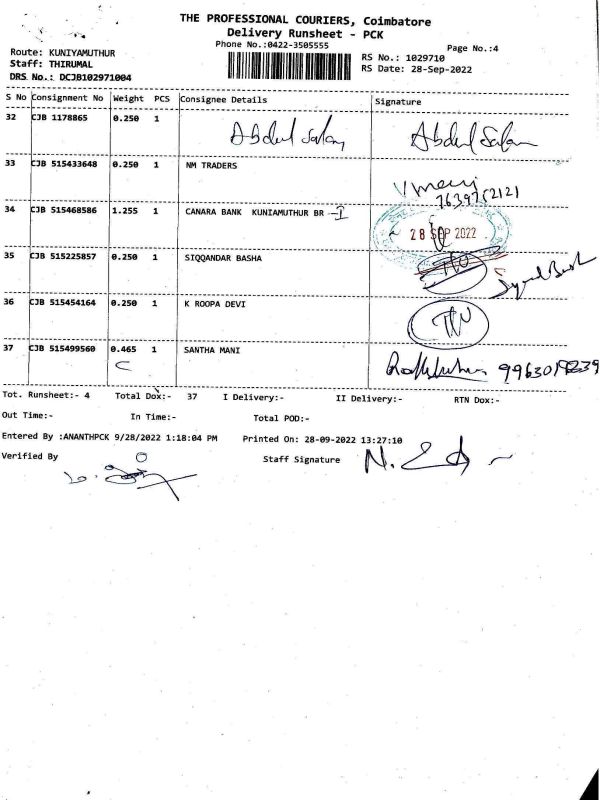 THE PROFESSIONAL COURIERS, Coimbatore
Delivery Runsheet - PCK
Phone No.:0422-3505555
Page No.:4
Route: KUNIYAMUTHUR
Staff: THIRUMAL
DRS No.: DCJB102971004
RS No.: 1029710
RS Date: 28-Sep-2022
S No Consignment No Weight PCS Consignee Details Signature
32 CJB 1178865 0.250 1 Abdul Salam Abdul Salam
33 CJB 515433648 0.250 1 NM TRADERS
34 CJB 515468586 1.255 1 CANARA BANK KUNIAMUTHUR BR -I 28 SEP 2022
35 CJB 515225857 0.250 1 SIQQANDAR BASHA
36 CJB 515454164 0.250 1 K ROOPA DEVI
37 CJB 515499560 0.465 1 SANTHA MANI
Tot. Runsheet:- 4 Total Dox:- 37 I Delivery:- II Delivery:- RTN Dox:-
Out Time:- In Time:- Total POD:-
Entered By :ANANTHPCK 9/28/2022 1:18:04 PM Printed On: 28-09-2022 13:27:10
Verified By Staff Signature